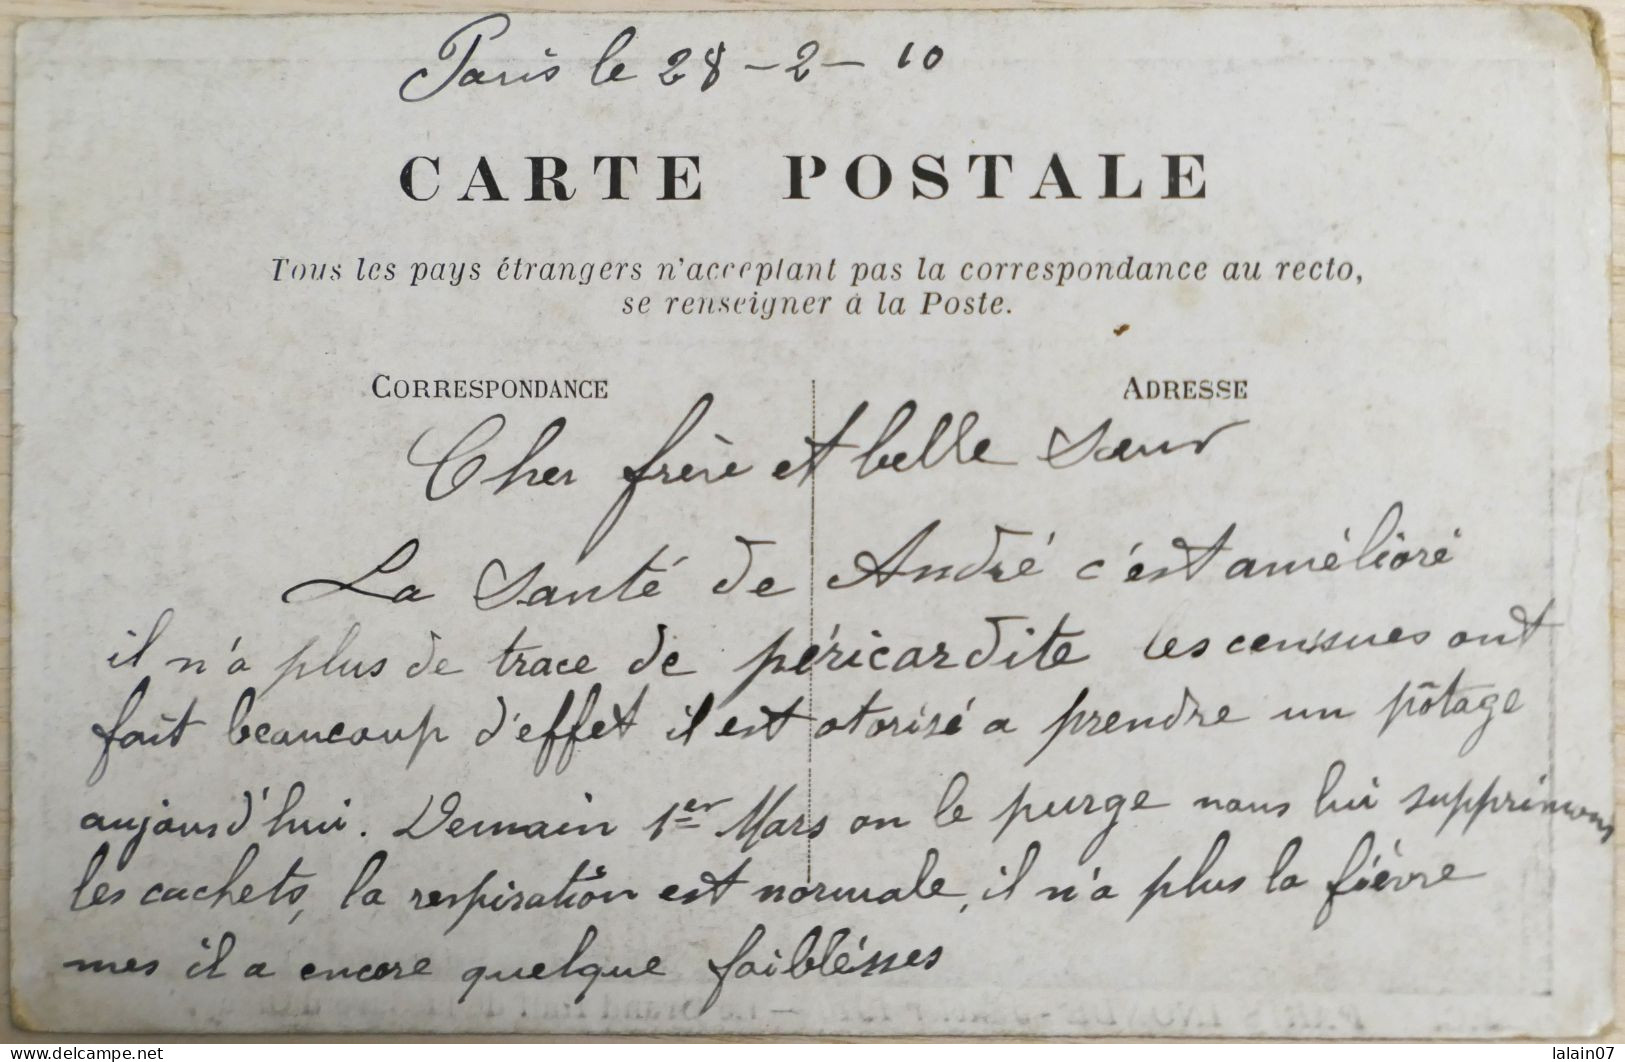 Paris le 28-2-10
CARTE POSTALE
Tous les pays étrangers n'acceptant pas la correspondance au recto,
se renseigner à la Poste.
CORRESPONDANCE
ADRESSE
Cher frère et belle Sœur
La Santé de André c'est amélioré
il n'a plus de trace de péricardite les censsues ont
fait beaucoup d'effet il est otorisé a prendre un pôtage
aujourd'hui. Demain 1er Mars on le purge nous lui supprimons
les cachets, la respiration est normale, il n'a plus la fièvre
mes il a encore quelque faiblésses
delcampe.net
lalain07